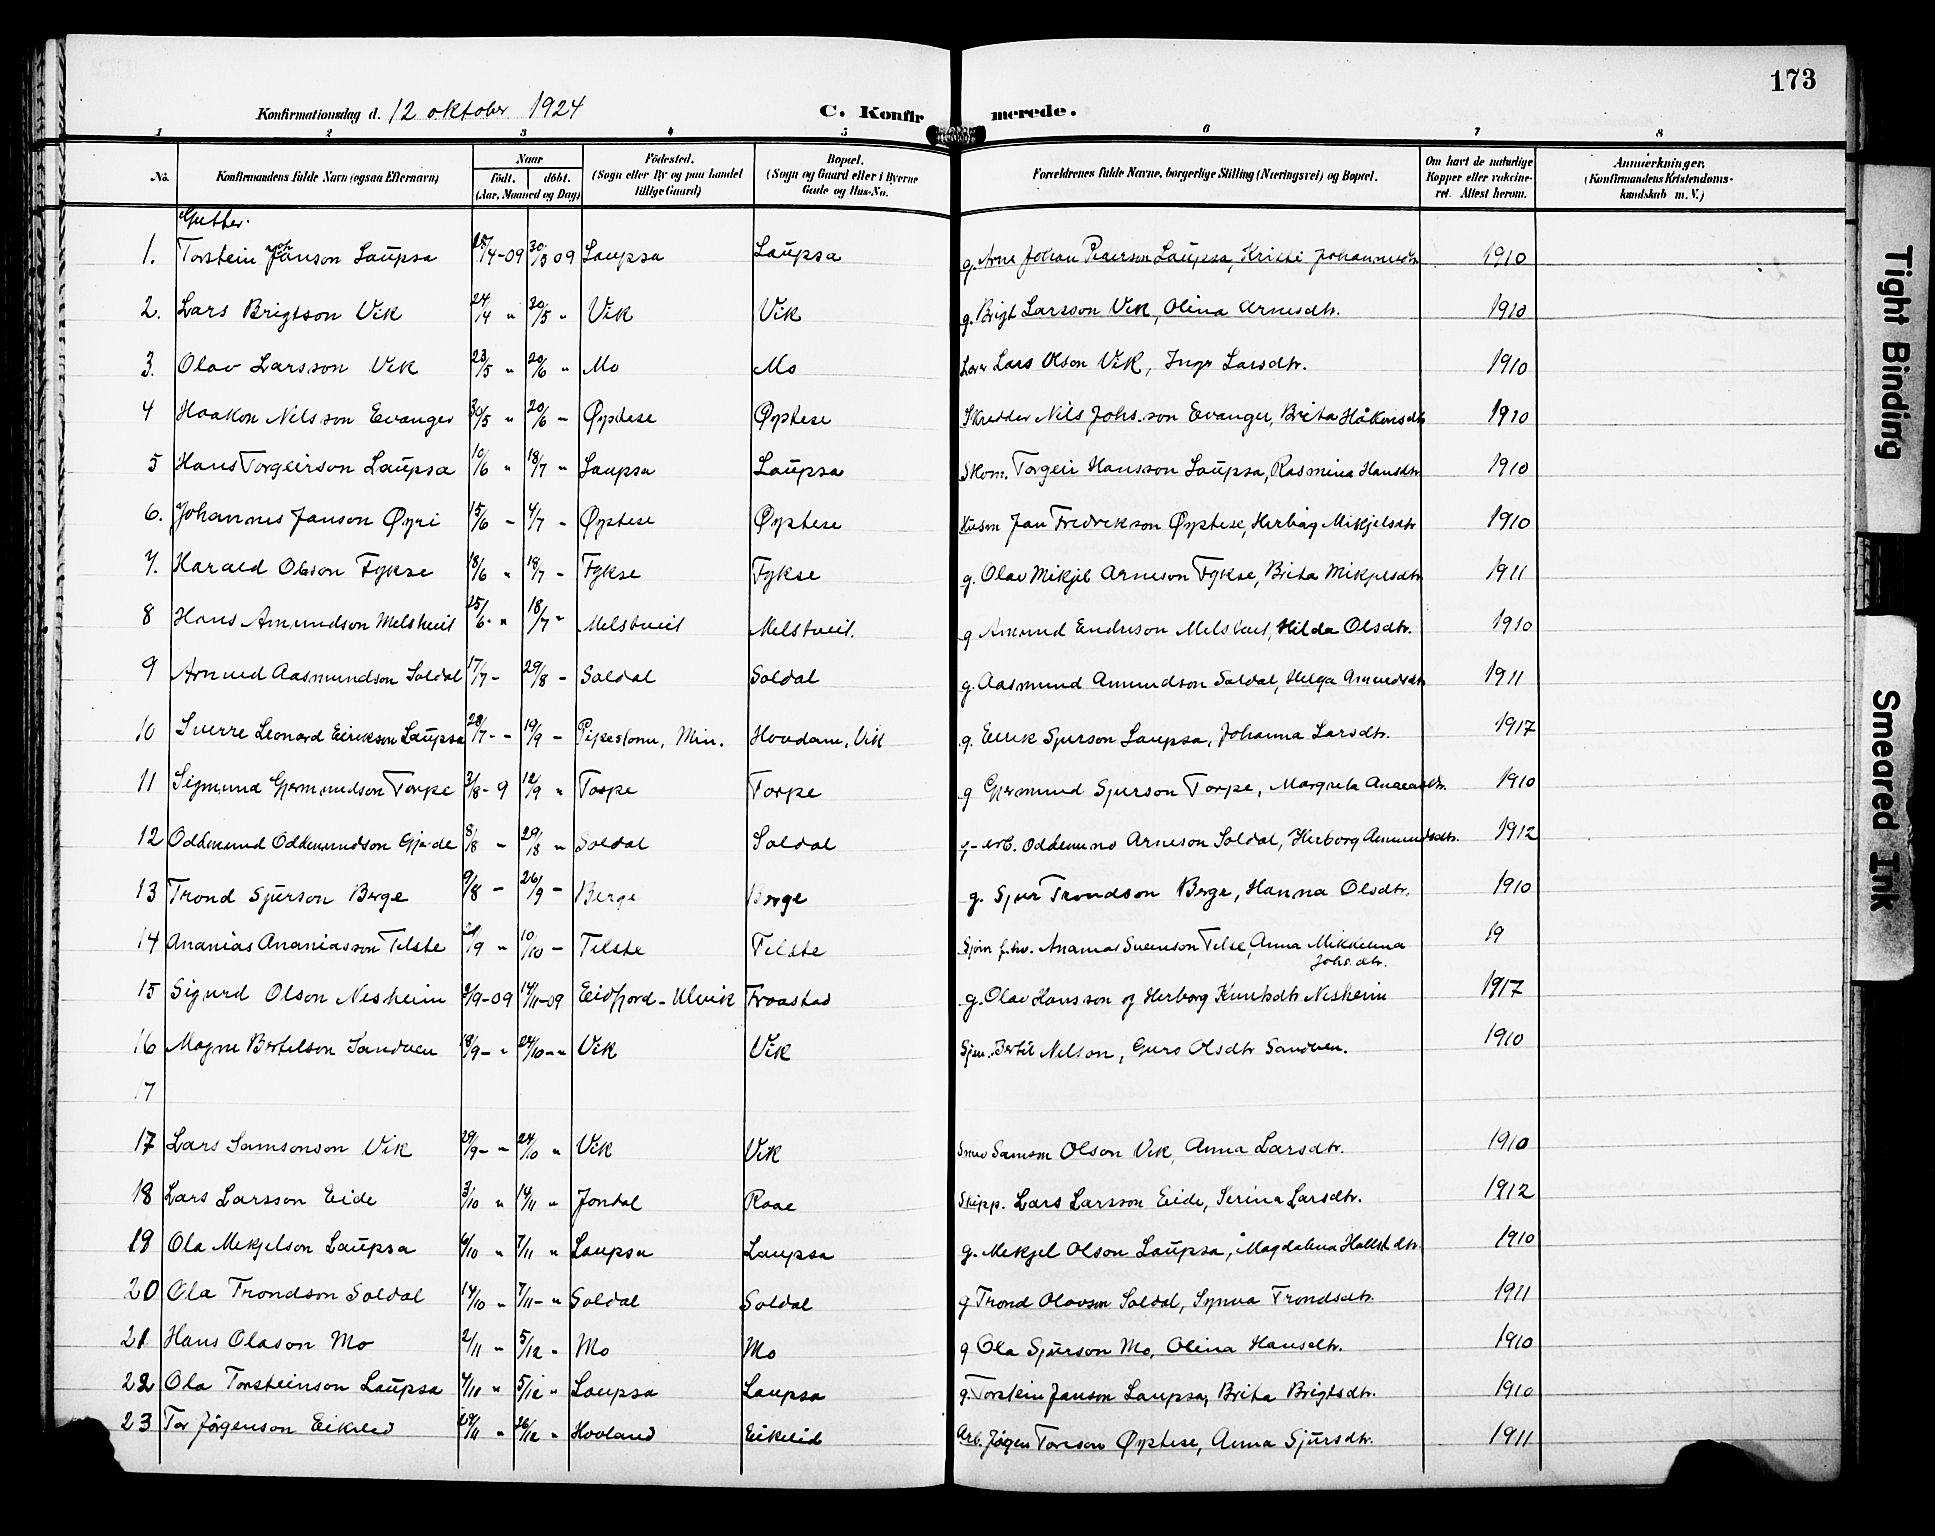 173
Konfirmationsdag d. 12 oktober 1924 C. Konfirmerede.
1 2 3 4 5 6 7 8
No. Konfirmandens fulde Navn (ogsaa Efternavn) Naar födt. döbt. (Aar, Maaned og Dag) Födested. (Sogn eller By og paa Landet tillige Gaard) Bopæl. (Sogn og Gaard eller i Byerne Gade og Hus-No. Forældrenes fulde Navne, borgerlige Stilling (Næringsvei) og Bopæl. Om havt de naturlige Kopper eller vaksineret. Attest herom. Anmærkninger. (Konfirmandens Kristendomskundskab m. V.)
Gutter.
1. Torstein Janson Laupsa 25/4-09 30/5 09 Laupsa Laupsa g. Arne Johan Pederson Laupsa, Kristi Johannesdtr 1910
2. Lars Brigtson Vik 24/4 " 30/5 " Vik Vik g. Brigt Larsson Vik, Olina Arnesdtr. 1910
3. Olav Larsson Vik 23/5 " 20/6 " Mo Mo Lars Olson Vik, Inga Larsdtr. 1910
4 Haakon Nilsson Evanger 30/5 " 20/6 - Øystese Øystese Skredder Nils Johs.son Evanger, Brita Håkonsdtr 1910
5 Hans Torgeirson Laupsa 10/6 " 18/7 " Laupsa Laupsa Skom. Torgeir Hansson Laupsa, Rasmina Hansdtr 1910
6. Johannes Janson Øyri 15/6 - 4/7 - Øystese Øystese Husm Jan Fredrikson Øystese, Herbåg Mikjelsdtr 1910
7. Harald Olson Fykse 18/6 " 18/7 - Fykse Fykse g. Olav Mikjel Arneson Fykse, Brita Mikjelsdtr 1911
8 Hans Amundson Melstveit 25/6 - " 18/7 - Melstveit Melstveit. g Amund Endreson Melstveit, Hilda Olsdtr. 1910
9 Amund Aasmundson Soldal 17/7 - 29/8 - Soldal Soldal g. Aasmund Amundson Soldal, Helga Amundsdtr 1911
10 Sverre Leonard Eirikson Laupsa 28/7 - - 19/9 - Pipestone, Min. Hovdane, Vik g. Eirik Sjurson Laupsa, Johanna Larsdtr. 1917
11 Sigmund Gjermundson Torpe 3/8 - 9 12/9 " Torpe Torpe g Gjermund Sjurson Torpe, Margreta Andersdtr. 1910
12 Oddmund Oddmundson Gjerde 8/8 - 29/8 " Soldal Soldal Oddmund Arneson Soldal, Herborg Aamundsdtr. 1912
13 Trond Sjurson Berge 9/8 - 26/9 - Berge Berge g. Sjur Trondson Berge, Hanna Olsdtr. 1910
14 Ananias Ananiasson Telste /9 " 10/10 - Telste Telste Ananias Svenson Telse, Anna Mikkelina Johs.dtr. 19
15 Sigurd Olson Nesheim 2/9-09 14/11-09 Eidfjord - Ulvik Fraastad g. Olav Hansson og Herborg Knutsdtr Nesheim 1917
16 Magne Bertelson Sandven 18/9 - " 24/10 - " Vik Vik Bertil Nilson, Guro Olsdtr Sandven. 1910
17
17 Lars Samsonson Vik 29/9 - " 24/10 " Vik Vik Smed Samson Olson Vik, Anna Larsdtr. 1910
18 Lars Larsson Eide 3/10 " 14/11 " Jondal Raae Skipp. Lars Larsson Eide, Serina Larsdtr. 1912
19 Ola Mekjelson Laupsa 6/10 " 7/11 " Laupsa Laupsa g. Mekjel Olson Laupsa, Magdalena Hallstdtr. 1910
20 Ola Trondson Soldal 14/10 " 7/11 - " Soldal Soldal g Trond Olavson Soldal, Synva Trondsdtr. 1911
21 Hans Olason Mo 2/11 - 5/12 - Mo Mo g Ola Sjurson Mo, Olina Hansdtr. 1910
22 Ola Torsteinson Laupsa 4/11 " 5/12 " Laupsa Laupsa g. Torstein Janson Laupsa, Brita Brigtsdtr. 1910
23 Tor Jørgenson Eikeled 29/11 " 26/12 " Hovland Eikelid Arb. Jøgen Toreson Øystese, Anna Sjursdtr. 1911
Tight Binding
Smeared Ink